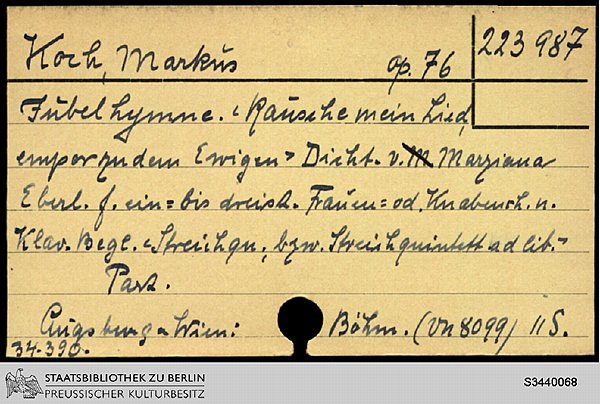 Koch, Markus op. 76 223 987
Jubelhymne. <Rausche mein Lied,
empor zu dem Ewigen> Dicht. v. M Marziana
Eberl. f. ein= bis dreist. Frauen= od. Knabench. u.
Klav. Begl. <Streichqu., bzw. Streichquintett ad lib.>
Part.
Augsburg u. Wien: Böhm. (VN 8099) 11 S.
34-390.
STAATSBIBLIOTHEK ZU BERLIN
PREUSSISCHER KULTURBESITZ
S3440068